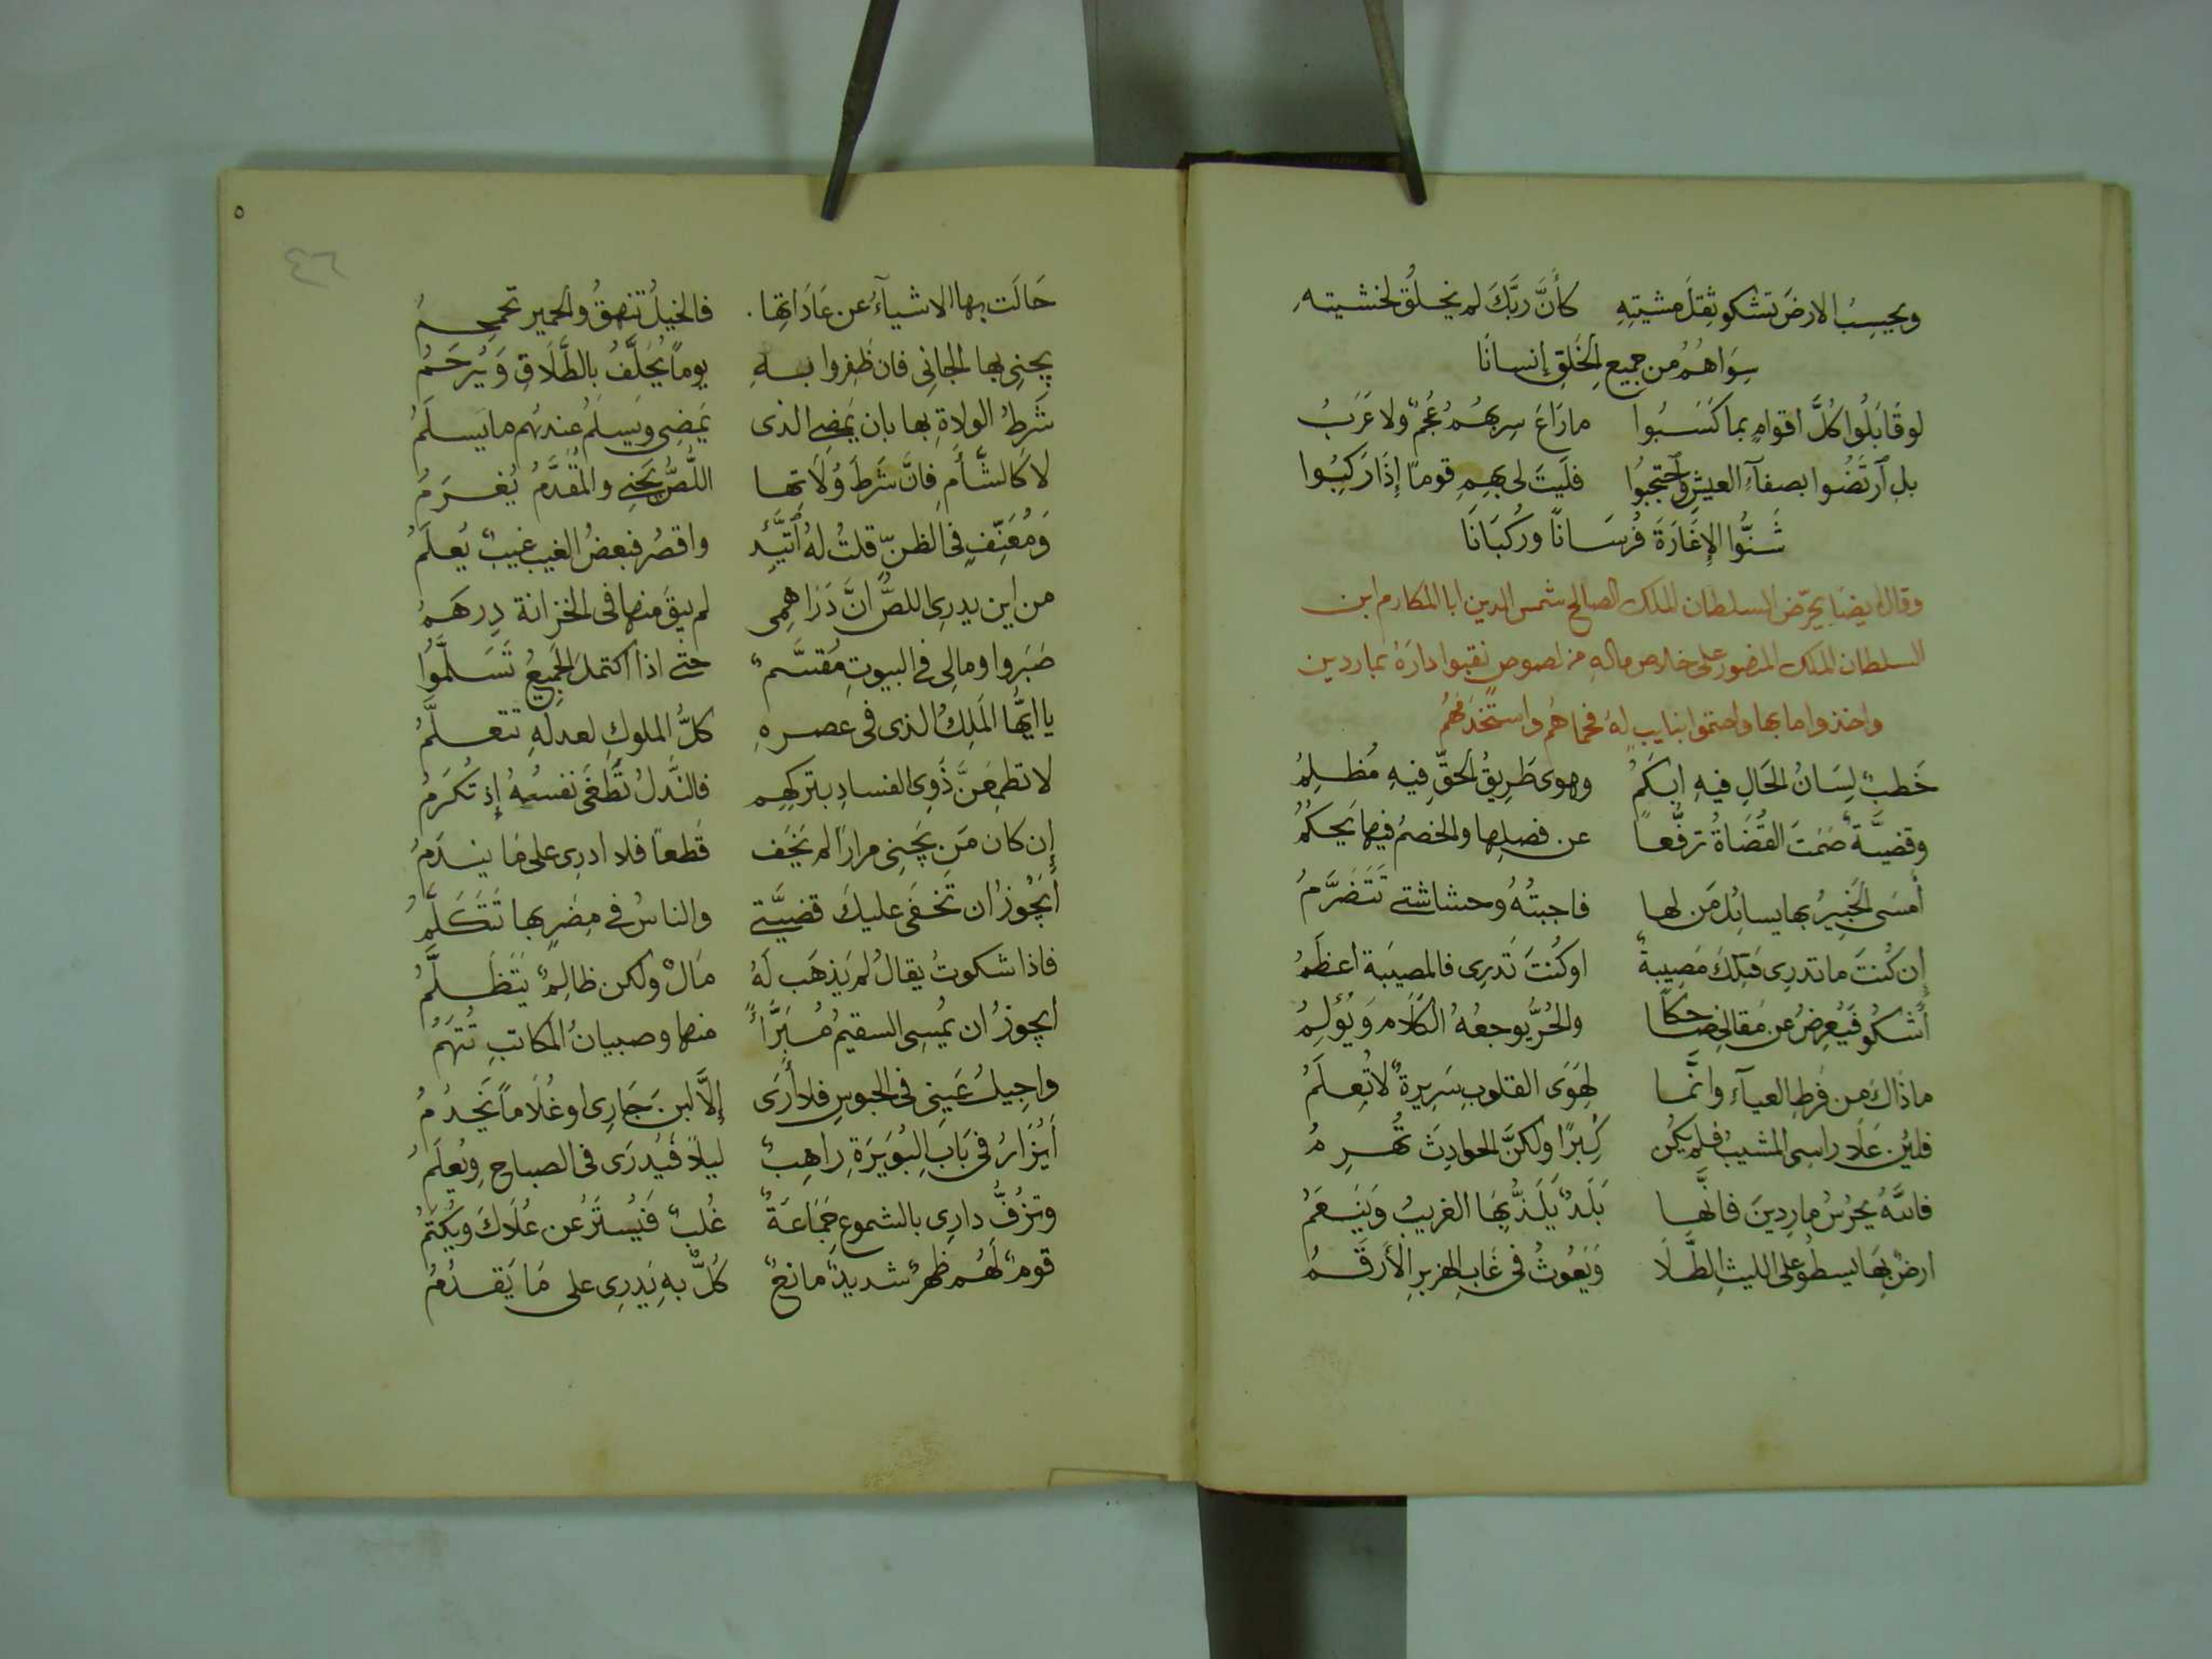 ويحسب الارضَ تشكو ثِقلَ مشيتِهِ كأَنَّ ربَّكَ لم يخلق لخشيته
سِوَاهُمُ من جميعِ الخَلقِ إنسانَا
لو قَابَلُوا كُلَّ اقوامٍ بما كَسَبُوا ما رَاعَ سِربهُمُ عُجمٌ ولا عَرَبُ
بلِ ٱرتَضُوا بصفآءِ العيشِ وٱحتجبُوا فلَيتَ لى بهِمِ قومًا إِذَا رَكِبُوا
شَنُّوا الإِغَارَةَ فُرسَانًا ورُكبَانَا
وقال ايضا يحرّض السلطان الملك الصالح شمس الدين ابا المكارم ابن
السلطان الملك المنصور على خلاص ماله من لصوص نقبوا دارَهُ بماردين
واخذوا ما بها واحتموا بنايبٍ لهُ فحماهُم واستخدمُهُم
خَطبٌ لِسَانُ الحَالِ فيهِ ابكَمُ وهوى طَرِيقُ الحقِّ فيهِ مُظلِمُ
وقضيَّة صَمَتَ القُضَاةُ ترفُّعاً عن فصلِها والخصمُ فيها يَحكُمُ
أَمسَى الخَبِيرُ بها يسائِلُ مَن لها فاجبتُهُ وحشاشتى تَتَضَرَّمُ
إِن كُنتَ ما تدرِى فتِلكَ مَصِيبةٌ او كُنتَ تَدرِى فالمصيبَة اعظَمُ
أشكُو فيُعرِضُ عن مَقالى ضاحكاً والحُرُّ يوجعهُ الكَلَام وَيُؤلِمُ
ما ذَاكَ من فَرطِ العيآءِ وانَّما لِهَوَى القلوبِ سَرِيرةٌ لا تُعلَمُ
فلئِن عَلَا راسِى المشيبُ فلم يكُن كِبرًا ولكنَّ الحوادِثَ تُهرِمُ
فاللهُ يَحرُسُ مارِدِينَ فانَّها بَلَدٌ يَلَذُّ بِهَا الغريبُ وَيَنعَمُ
ارضٌ بِهَا يسطُو على الليثِ الطَّلَا وَيَعُوثُ فى غَابِ الهزبرِ الأَرقَمُ
٥
حَالَت بها الاشيآءُ عن عَادَاتِها فالخيلُ تنهقُ والحمير تحمحِمُ
يجنِى بها الجانِى فان ظَفِروا بهِ يوماً يُحَلَّفُ بالطَّلَاقِ وَيُرحَمُ
شَرطُ الولاةِ بها بان يَمضى الذى يَمضِى ويَسلمُ عندَهُم ما يَسلَمُ
لا كَالشَّأَمِ فانَّ شَرطَ وُلَاتِها اللّصُّ يَجنِى والمُقَدَّمُ يُغرَمُ
وَمُعَنِّفٍ فى الظنّ قلتُ لهُ ٱتَّئِد واقصُر فبعضُ الغيب غيبٌ يُعلَمُ
من اين يدرِى اللصُّ انَّ دَرَاهِمِى لم يبقَ منها فى الخزانة دِرهَمُ
صَبَروا ومالِى فى البيوتِ مُقَسَّمٌ حتَّى اذا اكتملَ الجَمِيعُ تَسَلَّمُوا
يا ايُّها المَلِكُ الذى فى عصرهِ كلُّ الملوكِ لعدلهِ تتعلَّمُ
لا تطمِعَنَّ ذَوِى الفسادِ بتركِهِم فالنَّذلُ تَطغَى نفسُهُ إِذ تُكرَمُ
إِن كان مَن يَجنِى مرارًا لم يَخَف قَطعاً فلا ادرِى على مَا يندَمُ
أَيَجُوزُ ان تَخفَى عليكَ قضيَّتِى والناسُ فى مِصرٍ بها تَتَكَلَّمُ
فاذا شكوتُ يقالُ لم يَذهَب لَهُ مَالٌ ولكن ظالِمٌ يَتَظَلَّمُ
ايجوزُ ان يُمسِى السقيمُ مُبَرَّأً منها وصبيانُ المكاتبِ تُتهَمُ
واجِيلُ عَينِى فى الحبوسِ فلا أَرَى إِلَّا لبن جَارِى او غُلَاماً يَخدُمُ
أَيُزَارُ فى بَابِ البُوَيرَةِ رَاهِبٌ ليلاً فَيُدرَى فى الصباحِ ويُعلَمُ
وتزُفُّ دارِى بالشموعِ جَمَاعَةٌ غُلبٌ فَيُستَرُ عن عُلَاكَ ويُكتَمُ
قومٌ لَهُم ظهرٌ شديدٌ مانعٌ كُلٌّ بهِ يَدرِى على مَا يَقدُمُ